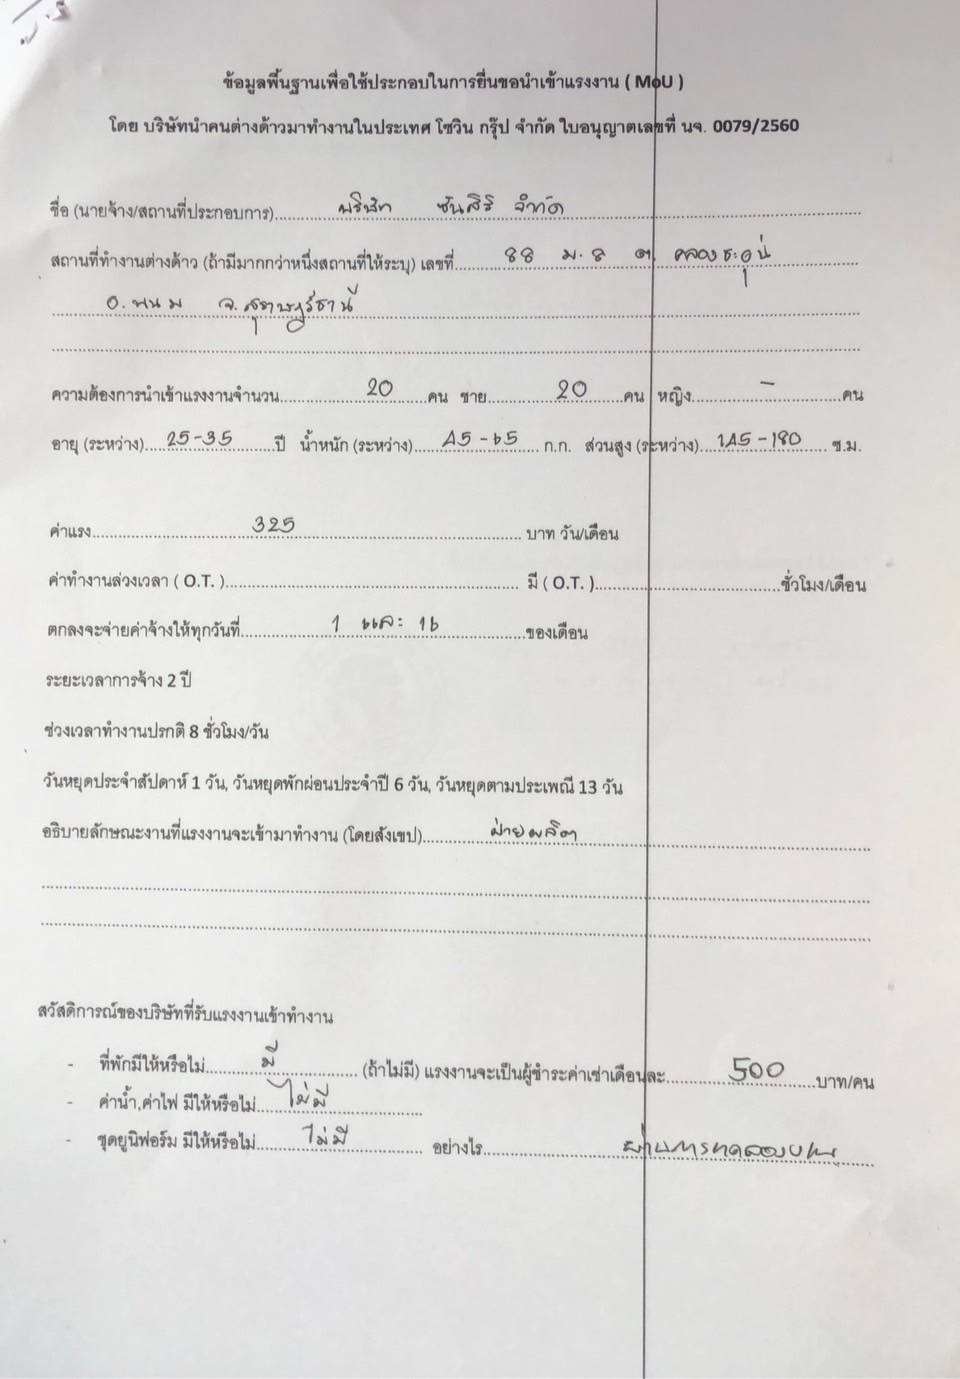 ข้อมูลพื้นฐานเพื่อใช้ประกอบในการยื่นขอนำเข้าแรงงาน ( MoU )
โดย บริษัทนำคนต่างด้าวมาทำงานในประเทศ โซวิน กรุ๊ป จำกัด ใบอนุญาตเลขที่ นจ. 0079/2560
ชื่อ (นายจ้าง/สถานที่ประกอบการ)........ บริษัท ซันสิริ จำกัด ........
สถานที่ทำงานต่างด้าว (ถ้ามีมากกว่าหนึ่งสถานที่ให้ระบุ) เลขที่........ 88 ม.8 ต. คลองชะอุ่น
อ. พนม จ. สุราษฎร์ธานี
ความต้องการนำเข้าแรงงานจำนวน........ 20 ........คน ชาย........ 20 ........คน หญิง........ - ........คน
อายุ (ระหว่าง)..... 25-35 ........ปี น้ำหนัก (ระหว่าง)..... 45-65 ..... ก.ก. ส่วนสูง (ระหว่าง).... 145-180 ..... ซ.ม.
ค่าแรง........ 325 ........ บาท วัน/เดือน
ค่าทำงานล่วงเวลา ( O.T. )........ มี ( O.T. )........ชั่วโมง/เดือน
ตกลงจะจ่ายค่าจ้างให้ทุกวันที่........ 1 และ 16 ........ของเดือน
ระยะเวลาการจ้าง 2 ปี
ช่วงเวลาทำงานปรกติ 8 ชั่วโมง/วัน
วันหยุดประจำสัปดาห์ 1 วัน, วันหยุดพักผ่อนประจำปี 6 วัน, วันหยุดตามประเพณี 13 วัน
อธิบายลักษณะงานที่แรงงานจะเข้ามาทำงาน (โดยสังเขป)........ ฝ่ายผลิต ........
สวัสดิการณ์ของบริษัทที่รับแรงงานเข้าทำงาน
- ที่พักมีให้หรือไม่........ มี ........ (ถ้าไม่มี) แรงงานจะเป็นผู้ชำระค่าเช่าเดือนละ........ 500 ........บาท/คน
- ค่าน้ำ,ค่าไฟ มีให้หรือไม่.... ไม่มี ........
- ชุดยูนิฟอร์ม มีให้หรือไม่........ ไม่มี ........ อย่างไร........ ผ่านการทดลองงาน